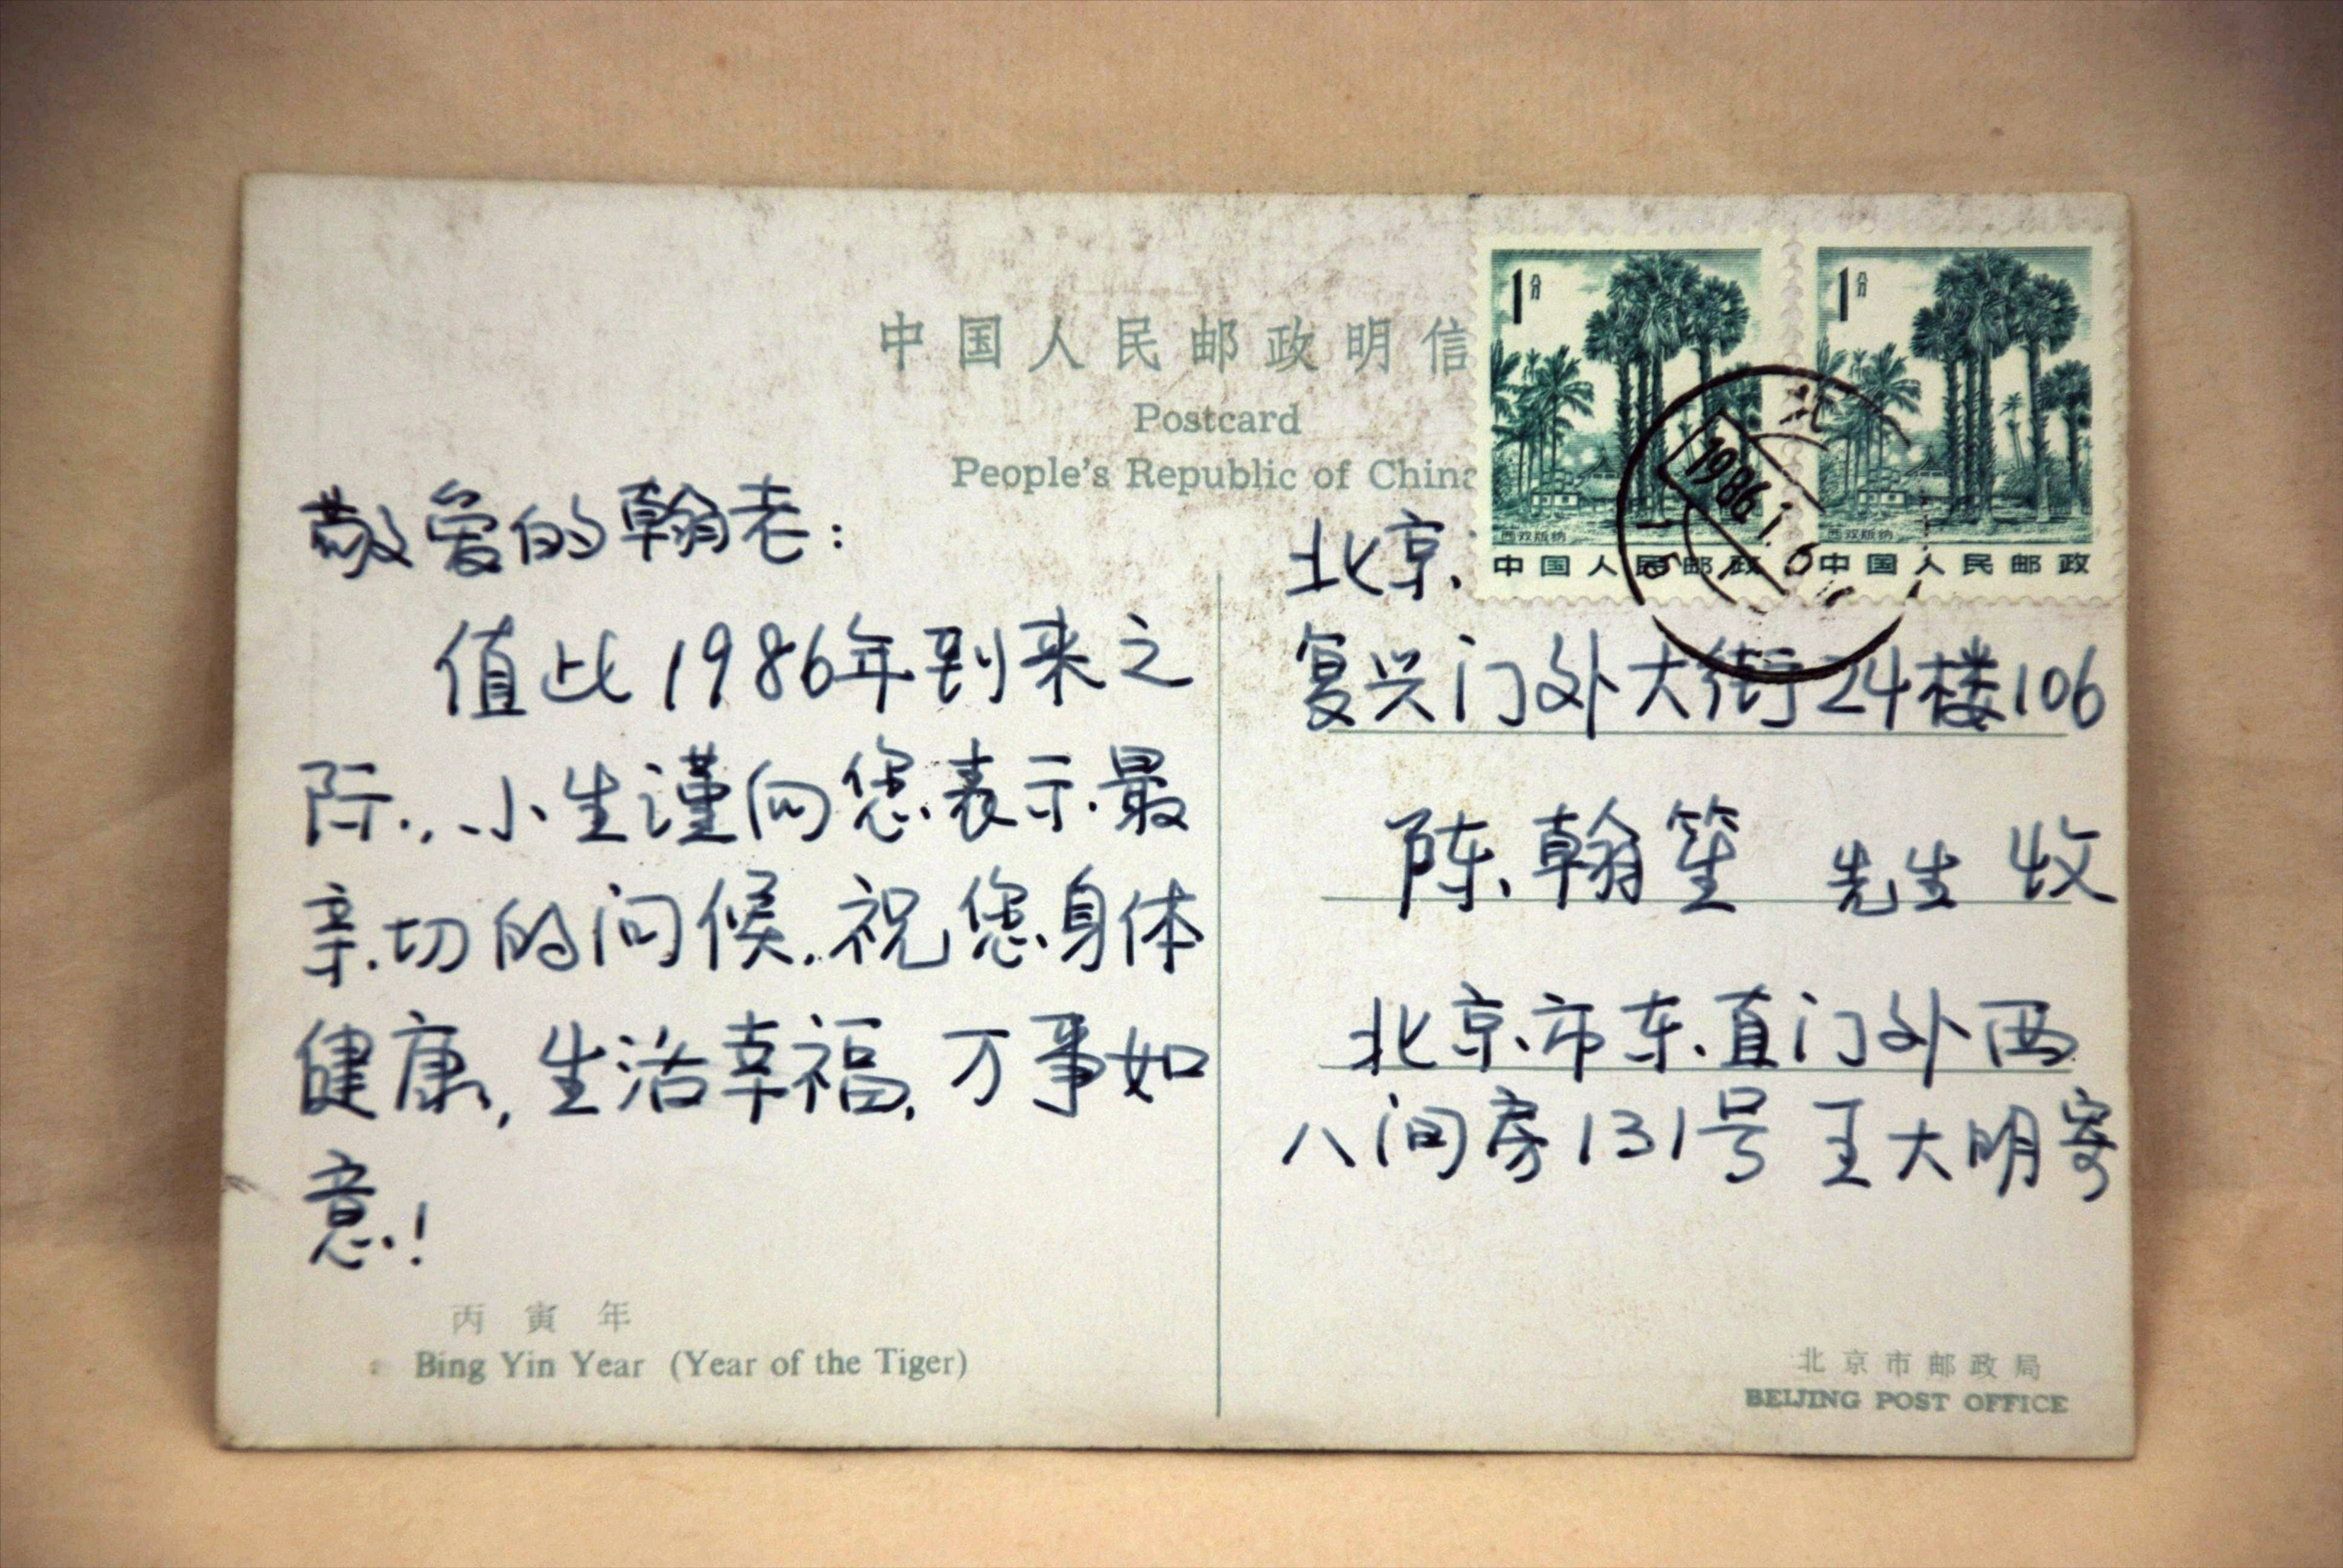 中国人民邮政明信
Postcard
People's Republic of China
1分
1分
西双版纳
西双版纳
中国人民邮政
中国人民邮政
北
1986.1.6
敬爱的翰老：
值此1986年到来之
际，小生谨向您表示最
亲切的问候.祝您身体
健康，生活幸福，万事如
意！
丙寅年
Bing Yin Year (Year of the Tiger)
北京
复兴门外大街24楼106
陈翰笙 先生 收
北京市东直门外西
八间房131号 王大明寄
北京市邮政局
BEIJING POST OFFICE